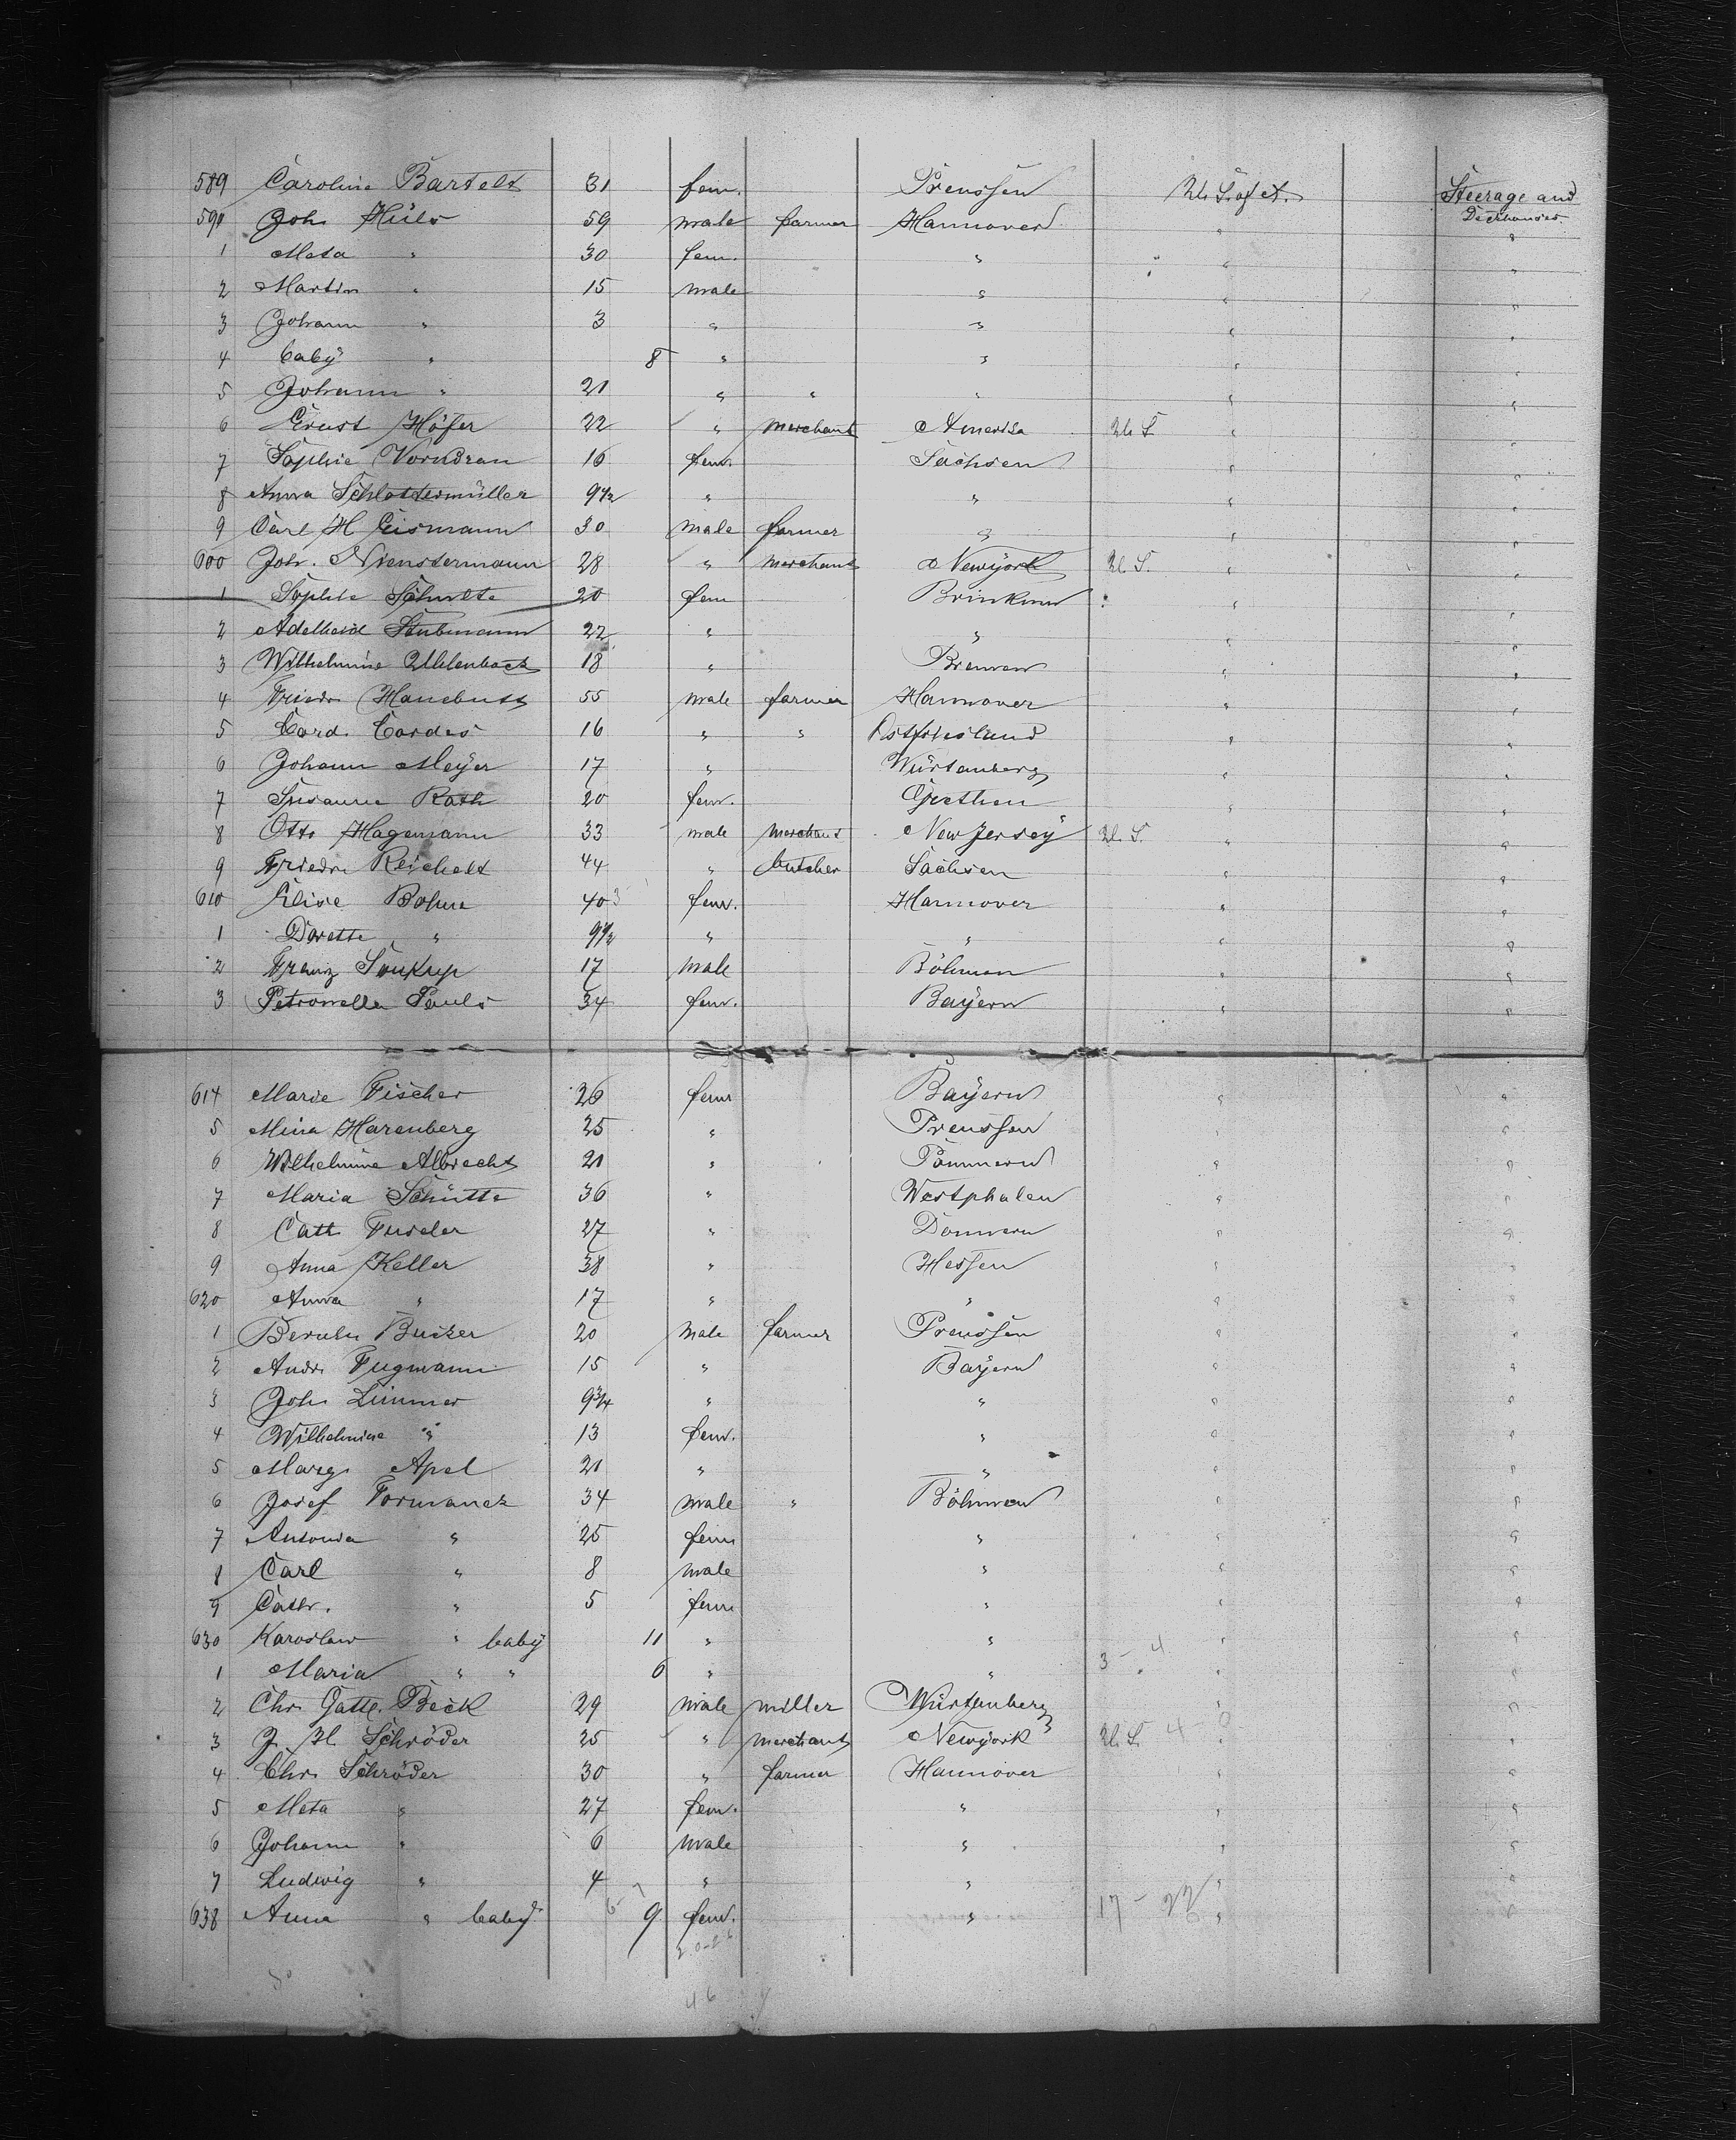 589 Caroline Bartelt 31 fem. Preussen U. S. of A. Steerage and
Deckhouses.
590 Joh. Hüls 59 male farmer Hannover " "
1 Meta " 30 fem. " " "
2 Martin " 15 male " " "
3 Johann " 3 " " " "
4 baby " 8 " " " "
5 Johann " 21 " " " " "
6 Ernst Höfer 22 " merchant America U. S. " "
7 Sophie Vorndran 16 fem. Sachsen " "
8 Anna Schlottermüller 9 1/2 " " " "
9 Carl H Eismann 30 male farmer " " "
600 Joh. Nienstermann 28 " merchant Newyork U. S. " "
1 Sophie Schulte 20 fem Brinkum " "
2 Adelheid Stubmann 22 " " " "
3 Wilhelmine Uhlenback 18 " Bremen " "
4 Friedr Hanebutt 55 male farmer Hannover " "
5 Cord. Cordes 16 " " Ostfriesland " "
6 Johann Meyer 17 " Würtenberg " "
7 Susanne Rath 20 fem. " "
8 Otto Hagemann 33 male merchant New Jersey U. S. " "
9 Friedr Reichelt 44 " butcher Sachsen " "
610 Elise Bohne 40 fem. Hannover " "
1 Dorette " 9 1/2 " " " "
2 Franz Soukup 17 male Böhmen " "
3 Petronella Pauls 34 fem. Bayern " "
614 Marie Fischer 26 fem Bayern " "
5 Mina Harenberg 25 " Preussen " "
6 Wilhelmine Albrecht 21 " Pommern " "
7 Maria Schütte 36 " Westphalen " "
8 Cath 27 " " "
9 Anna Keller 38 " Hessen " "
620 Anna " 17 " " " "
1 20 male farmer Preussen " "
2 Andr. Fugmann 15 " Bayern " "
3 Joh. Limmer 9 3/4 " " " "
4 Wilhelmine " 13 fem. " " "
5 Marg. Apel 21 " " " "
6 Josef Formanek 34 male " Böhmen " "
7 Antonia " 25 fem " " "
8 Carl " 8 male " " "
9 Cathr. " 5 fem " " "
630 Karoslaw " baby 11 " " " "
1 Maria " " 6 " " 3 - 4 " "
2 Chr. Gottl. Beck 29 male miller Würtenberg " "
3 J. H. Schröder 25 " merchant Newyork U. S. 4 - 0 " "
4 Chr. Schröder 30 " farmer Hannover " "
5 Meta " 27 fem. " " "
6 Johann " 6 male " " "
7 Ludwig " 4 " " " "
638 Anna " baby 9 fem. " 17 - 22 " "
46